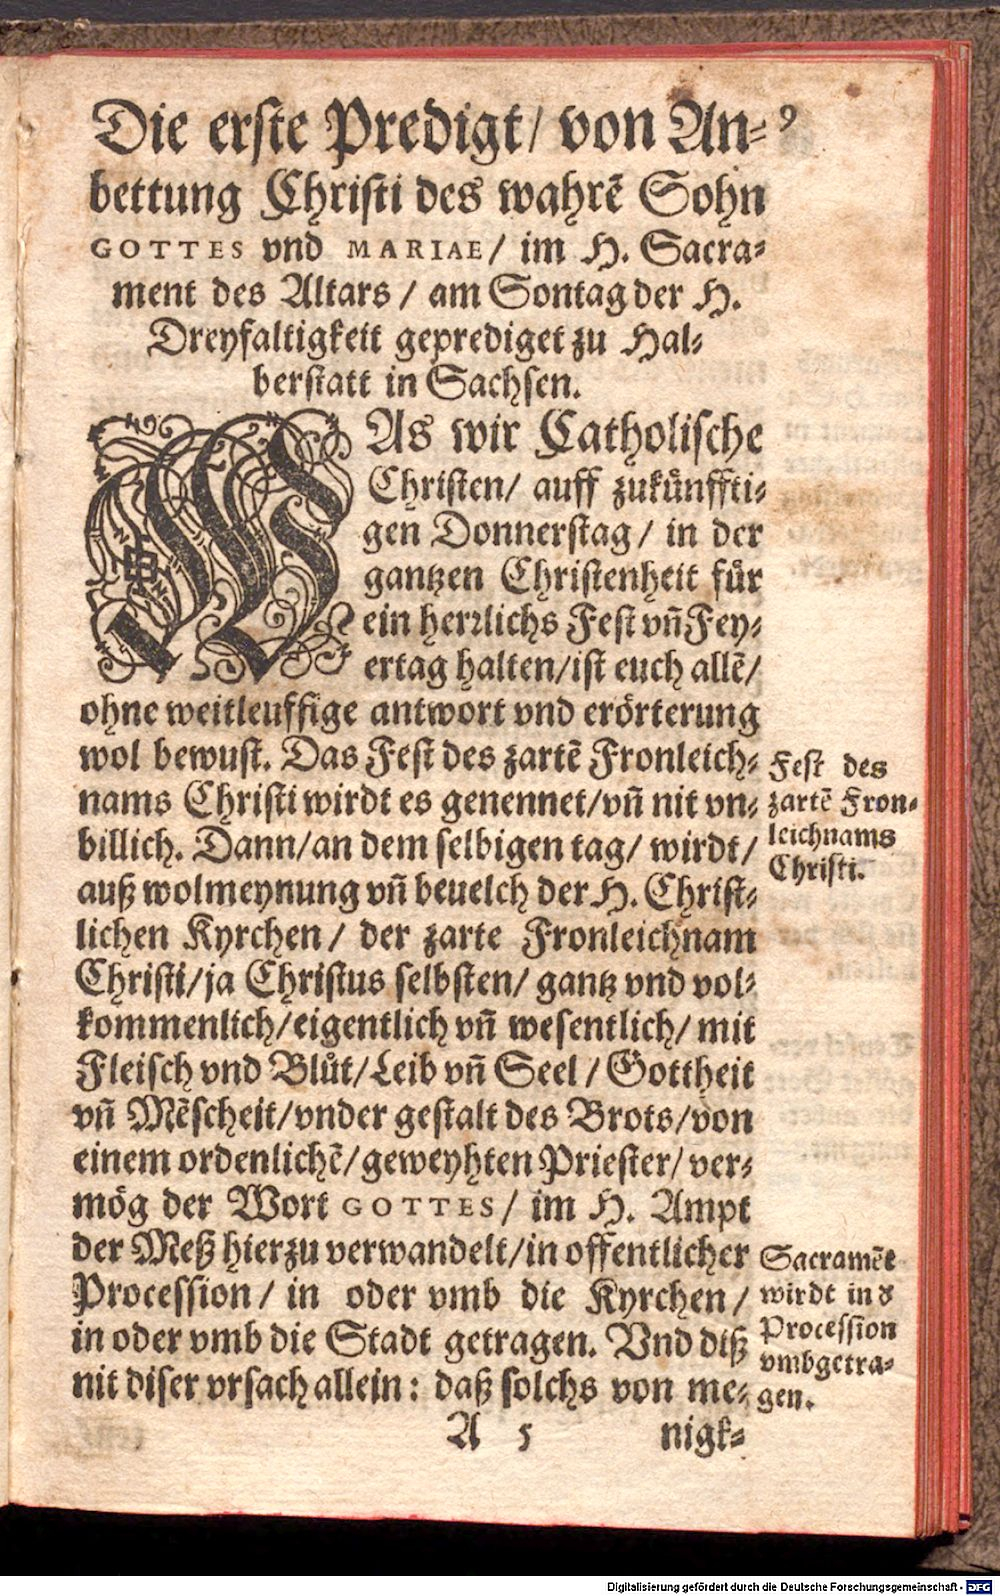 Die erste Predigt/ von An⸗ 9
bettung Christi des wahrē Sohn
GOTTES vnd MARIAE/ im H. Sacra⸗
ment des Altars/ am Sontag der H.
Dreyfaltigkeit geprediget zu Hal⸗
berstatt in Sachsen.
WAs wir Catholische
Christen/ auff zukünffti⸗
gen Donnerstag/ in der
gantzen Christenheit für
ein herrlichs Fest vñ Fey⸗
ertag halten/ ist euch allē/
ohne weitleuffige antwort vnd erörterung
wol bewust. Das Fest des zartē Fronleich⸗
nams Christi wirdt es genennet/ vñ nit vn⸗
billich. Dann/ an dem selbigen tag/ wirdt/
auß wolmeynung vñ beuelch der H. Christ⸗
lichen Kyrchen/ der zarte Fronleichnam
Christi/ ja Christus selbsten/ gantz vnd vol⸗
kommenlich/ eigentlich vñ wesentlich/ mit
Fleisch vnd Blůt/ Leib vñ Seel/ Gottheit
vñ Mēscheit/ vnder gestalt des Brots/ von
einem ordenlichē/ geweyhten Priester/ ver⸗
mög der Wort GOTTES/ im H. Ampt
der Meß hierzu verwandelt/ in offentlicher
Procession/ in oder vmb die Kyrchen/
in oder vmb die Stadt getragen. Vnd diß
nit diser vrsach allein: daß solchs von me⸗
A 5 nigk⸗
Fest des
zartē Fron⸗
leichnams
Christi.
Sacramēt
wirdt in d
Procession
vmbgetra⸗
gen.
Digitalisierung gefördert durch die Deutsche Forschungsgemeinschaft - DFG